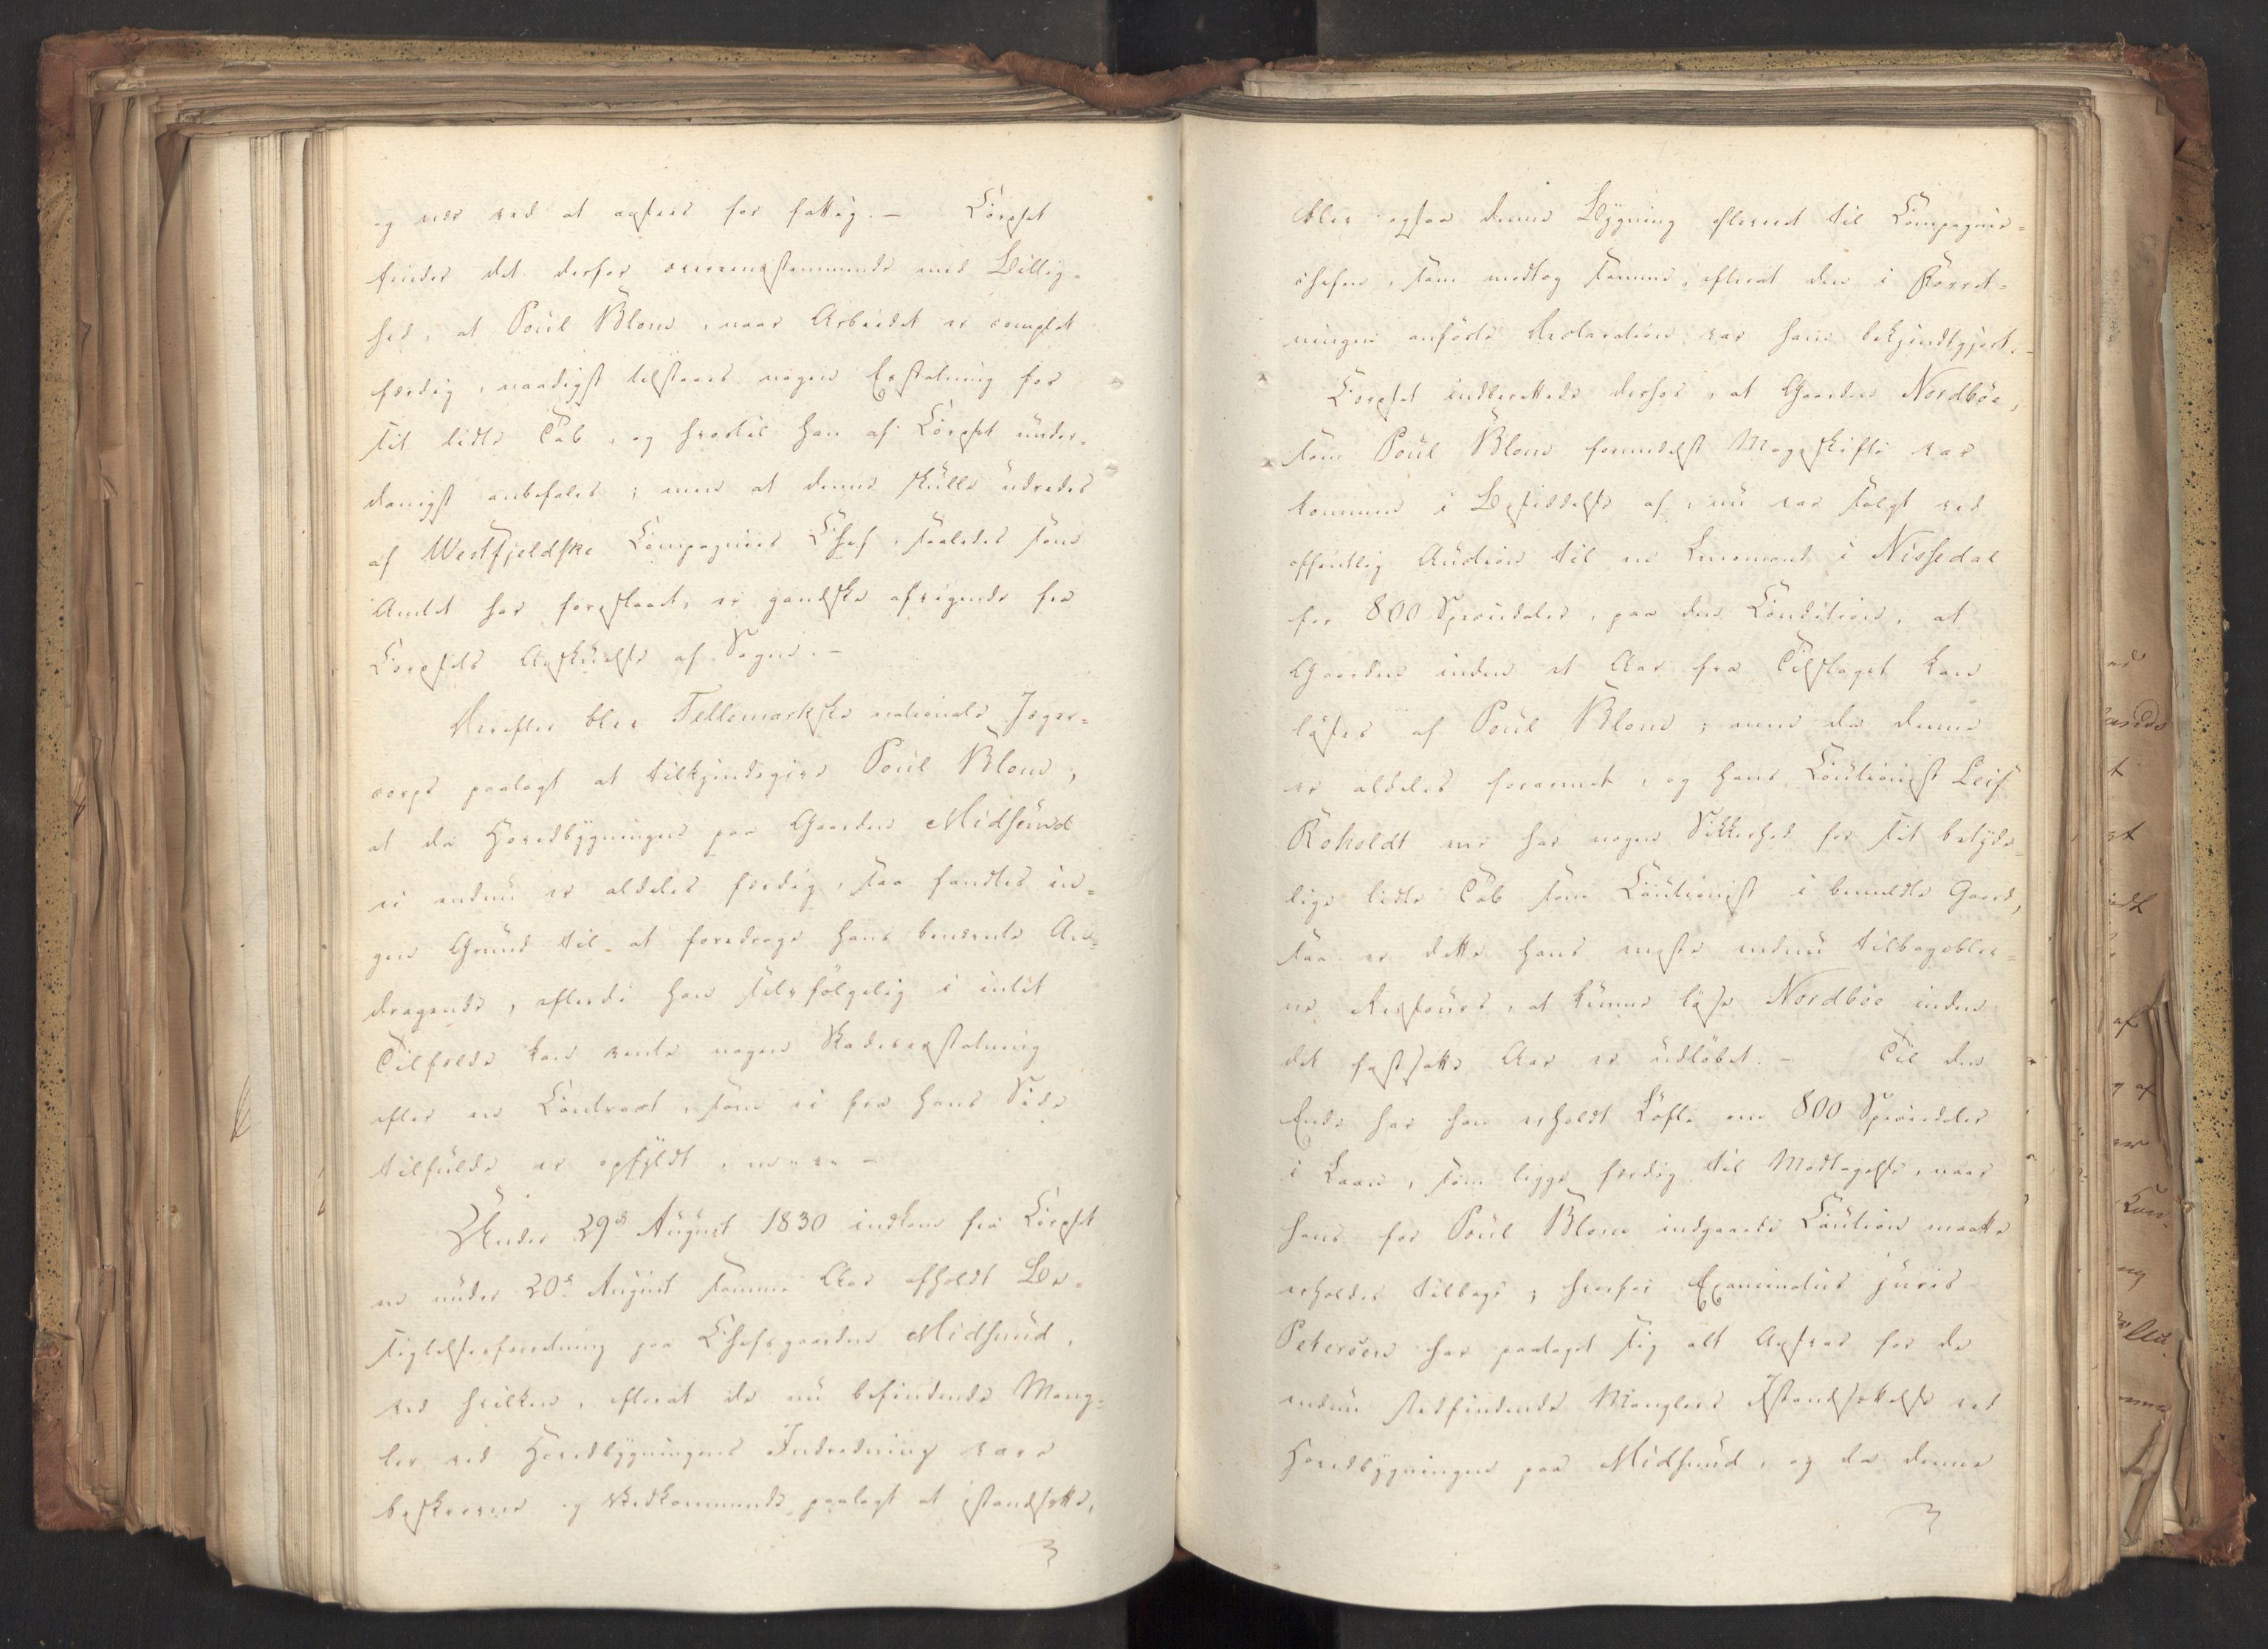 og nær ved at ansees for fattig. — Corpset
finder det derfor overeensstemmende med Billig-
hed, at Poul Blom, naar Arbeidet er complet
færdig, naadigst tilstaaes nogen Erstatning for
sit lidte Tab, og hvortil han af Corpset under-
danigst anbefales; men at denne skulle udredes
af Westfjeldske Compagnies Chef, saaledes som
Amtet har foreslaaet, er gandske afvigende fra
Corpsets Anskuelse af Sagen. —
Derefter blev Tellemarkske nationale Jæger-
corps paalagt at tilkjendegive Poul Blom,
at da Hovedbygningen paa Gaarden Midsund
ei endnu er aldeles færdig, saa fandtes in-
gen Grund til at foredrage hans benævnte An-
dragende, efterdi han selvfølgelig i intet
Tilfælde kan vente nogen Skadeserstatning
efter en Contract, som ei fra hans Side
tilfulde er opfyldt,
Under 29de August 1830 indkom fra Corpset
en under 20de August samme Aar afholdt Be-
sigtelsesforretning paa Chefsgaarden Midsund,
ved hvilken, efterat de nu befindende Mang-
ler ved Hovedbygningens Indredning vare
beskrevne og Vedkommende paalagt at istandsætte,
blev ogsaa denne Bygning afleveret til Compagnie-
chefen, som modtog samme, efterat den i Forret-
ningen anførte Declaration var ham bekjendtgjort. —
Corpset indberettede derhos, at Gaarden Nordböe,
som Poul Blom formedelst Mageskifte var
kommen i Besiddelse af, nu var solgt ved
offentlig Auction til en Lensmand i Nissedal
for 800 Speciedaler, paa den Condition, at
Gaarden inden et Aar fra Tilslaget kan
løses af Poul Blom; men da denne
er aldeles forarmet, og hans Cautionist Leif
Roholdt ei har nogen Sikkerhed for sit betyde-
lige lidte Tab som Cautionist i bemeldte Gaard,
saa er dette hans eneste endnu tilbageblev-
ne Ressource, at kunne løse Nordböe inden
det fastsatte Aar er udløbet. — Til den
Ende har han erholdt Løfte om 800 Speciedaler
i Laan, som ligge færdig til Modtagelse, naar
hans for Poul Blom indgaaede Caution maatte
erholdes tilbage; hvorfor Examinatus juris
Petersen har paataget sig alt Ansvar for de
endnu stedfindende Manglers Istandsættelse ved
Hovedbygningen paa Midsund, og da denne